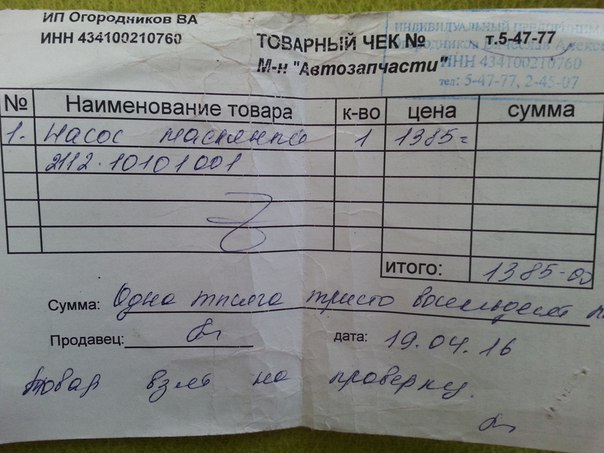 ИП Огородников ВА
ИНН 434100210760
ТОВАРНЫЙ ЧЕК № т.5-47-77
М-н "Автозапчасти"
ИНДИВИДУАЛЬНЫЙ
ИНН 434100210760
тел: 5-47-77, 2-45-07
№ Наименование товара к-во цена сумма
1. Насос масляный 1 1385=
2112.10101001
итого: 1385-00
Сумма: Одна тысяча триста восемьдесят
Продавец: дата: 19.04.16
Товар взят на проверку.